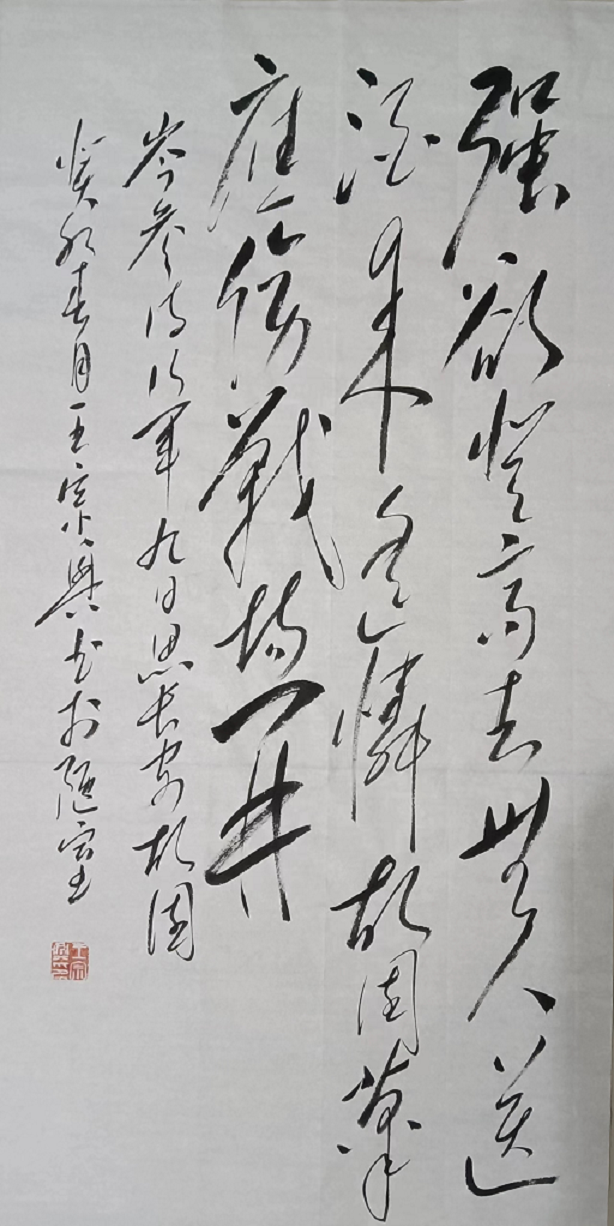 强欲登高去无人送
酒来遥怜故园菊
应傍战场开
岑参诗行军九日思长安故园
癸卯春月王宗兴书于陋室